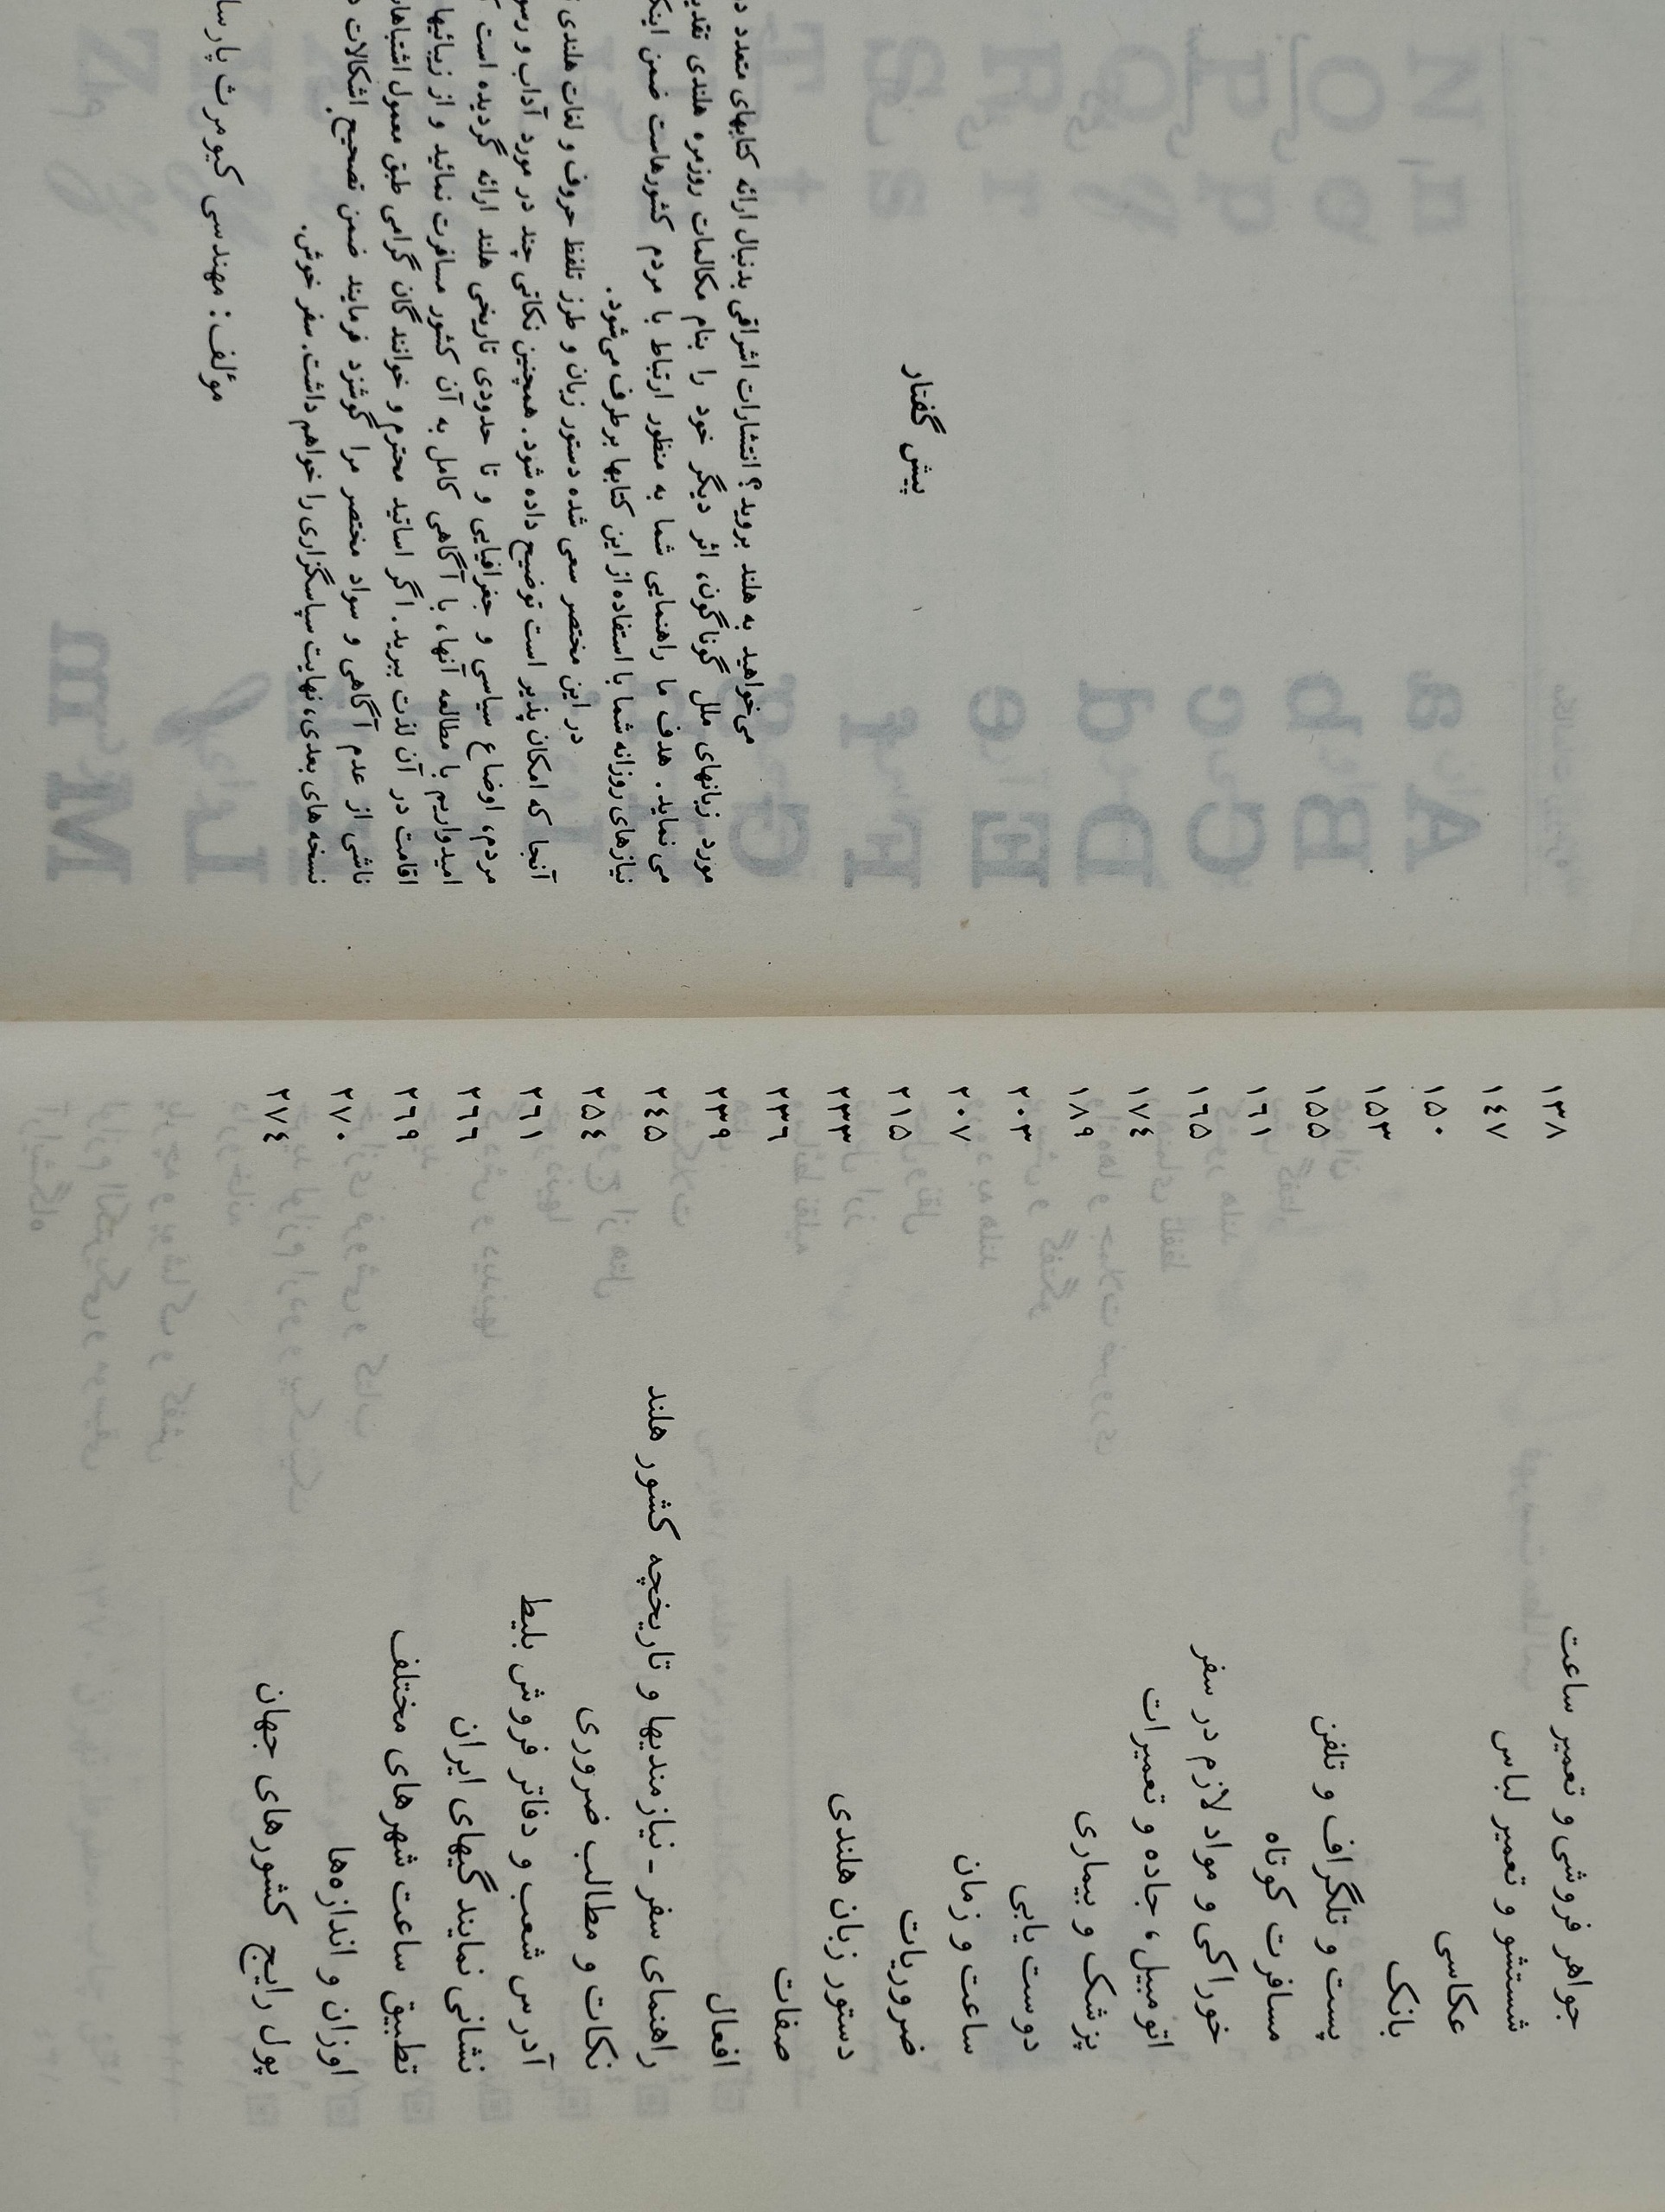 جواهر فروشی و تعمیر ساعت ۱۳۸
شستشو و تعمیر لباس ۱۴۷
عکاسی ۱۵۰
بانک ۱۵۳
پست و تلگراف و تلفن ۱۵۵
مسافرت کوتاه ۱۶۱
خوراکی و مواد لازم در سفر ۱۶۵
اتومبیل، جاده و تعمیرات ۱۷۴
پزشک و بیماری ۱۸۹
دوست یابی ۲۰۳
ساعت و زمان ۲۰۷
ضروریات ۲۱۵
دستور زبان هلندی ۲۳۳
صفات ۲۳۶
افعال ۲۳۹
راهنمای سفر - نیازمندیها و تاریخچه کشور هلند ۲۴۵
نکات و مطالب ضروری ۲۵۴
آدرس شعب و دفاتر فروش بلیط ۲۶۱
نشانی نمایندگیهای ایران ۲۶۶
تطبیق ساعت شهرهای مختلف ۲۶۹
اوزان و اندازه‌ها ۲۷۰
پول رایج کشورهای جهان ۲۷۴
پیش گفتار
می‌خواهید به هلند بروید؟ انتشارات اشراقی بدنبال ارائه کتابهای متعدد
مورد زبانهای ملل گوناگون، اثر دیگر خود را بنام مکالمات روزمره هلندی
می‌نماید. هدف ما راهنمایی شما به منظور ارتباط با مردم کشورهاست ضمن
نیازهای روزانه شما با استفاده از این کتابها برطرف می‌شود.
در این مختصر سعی شده دستور زبان و طرز تلفظ حروف و لغات هلندی
آنجا که امکان پذیر است توضیح داده شود. همچنین نکاتی چند در مورد آداب و
مردم، اوضاع سیاسی و جغرافیایی و تا حدودی تاریخی هلند ارائه گردیده است
امیدواریم با مطالعه آنها، با آگاهی کامل به آن کشور مسافرت نمائید و از زیبائیها
اقامت در آن لذت ببرید. اگر اساتید محترم و خوانندگان گرامی طبق معمول
ناشی از عدم آگاهی و سواد مختصر مرا گوشزد فرمایند ضمن تصحیح اشکالات
نسخه‌های بعدی، نهایت سپاسگزاری را خواهم داشت. سفر خوش.
مؤلف: مهندسی کیومرث